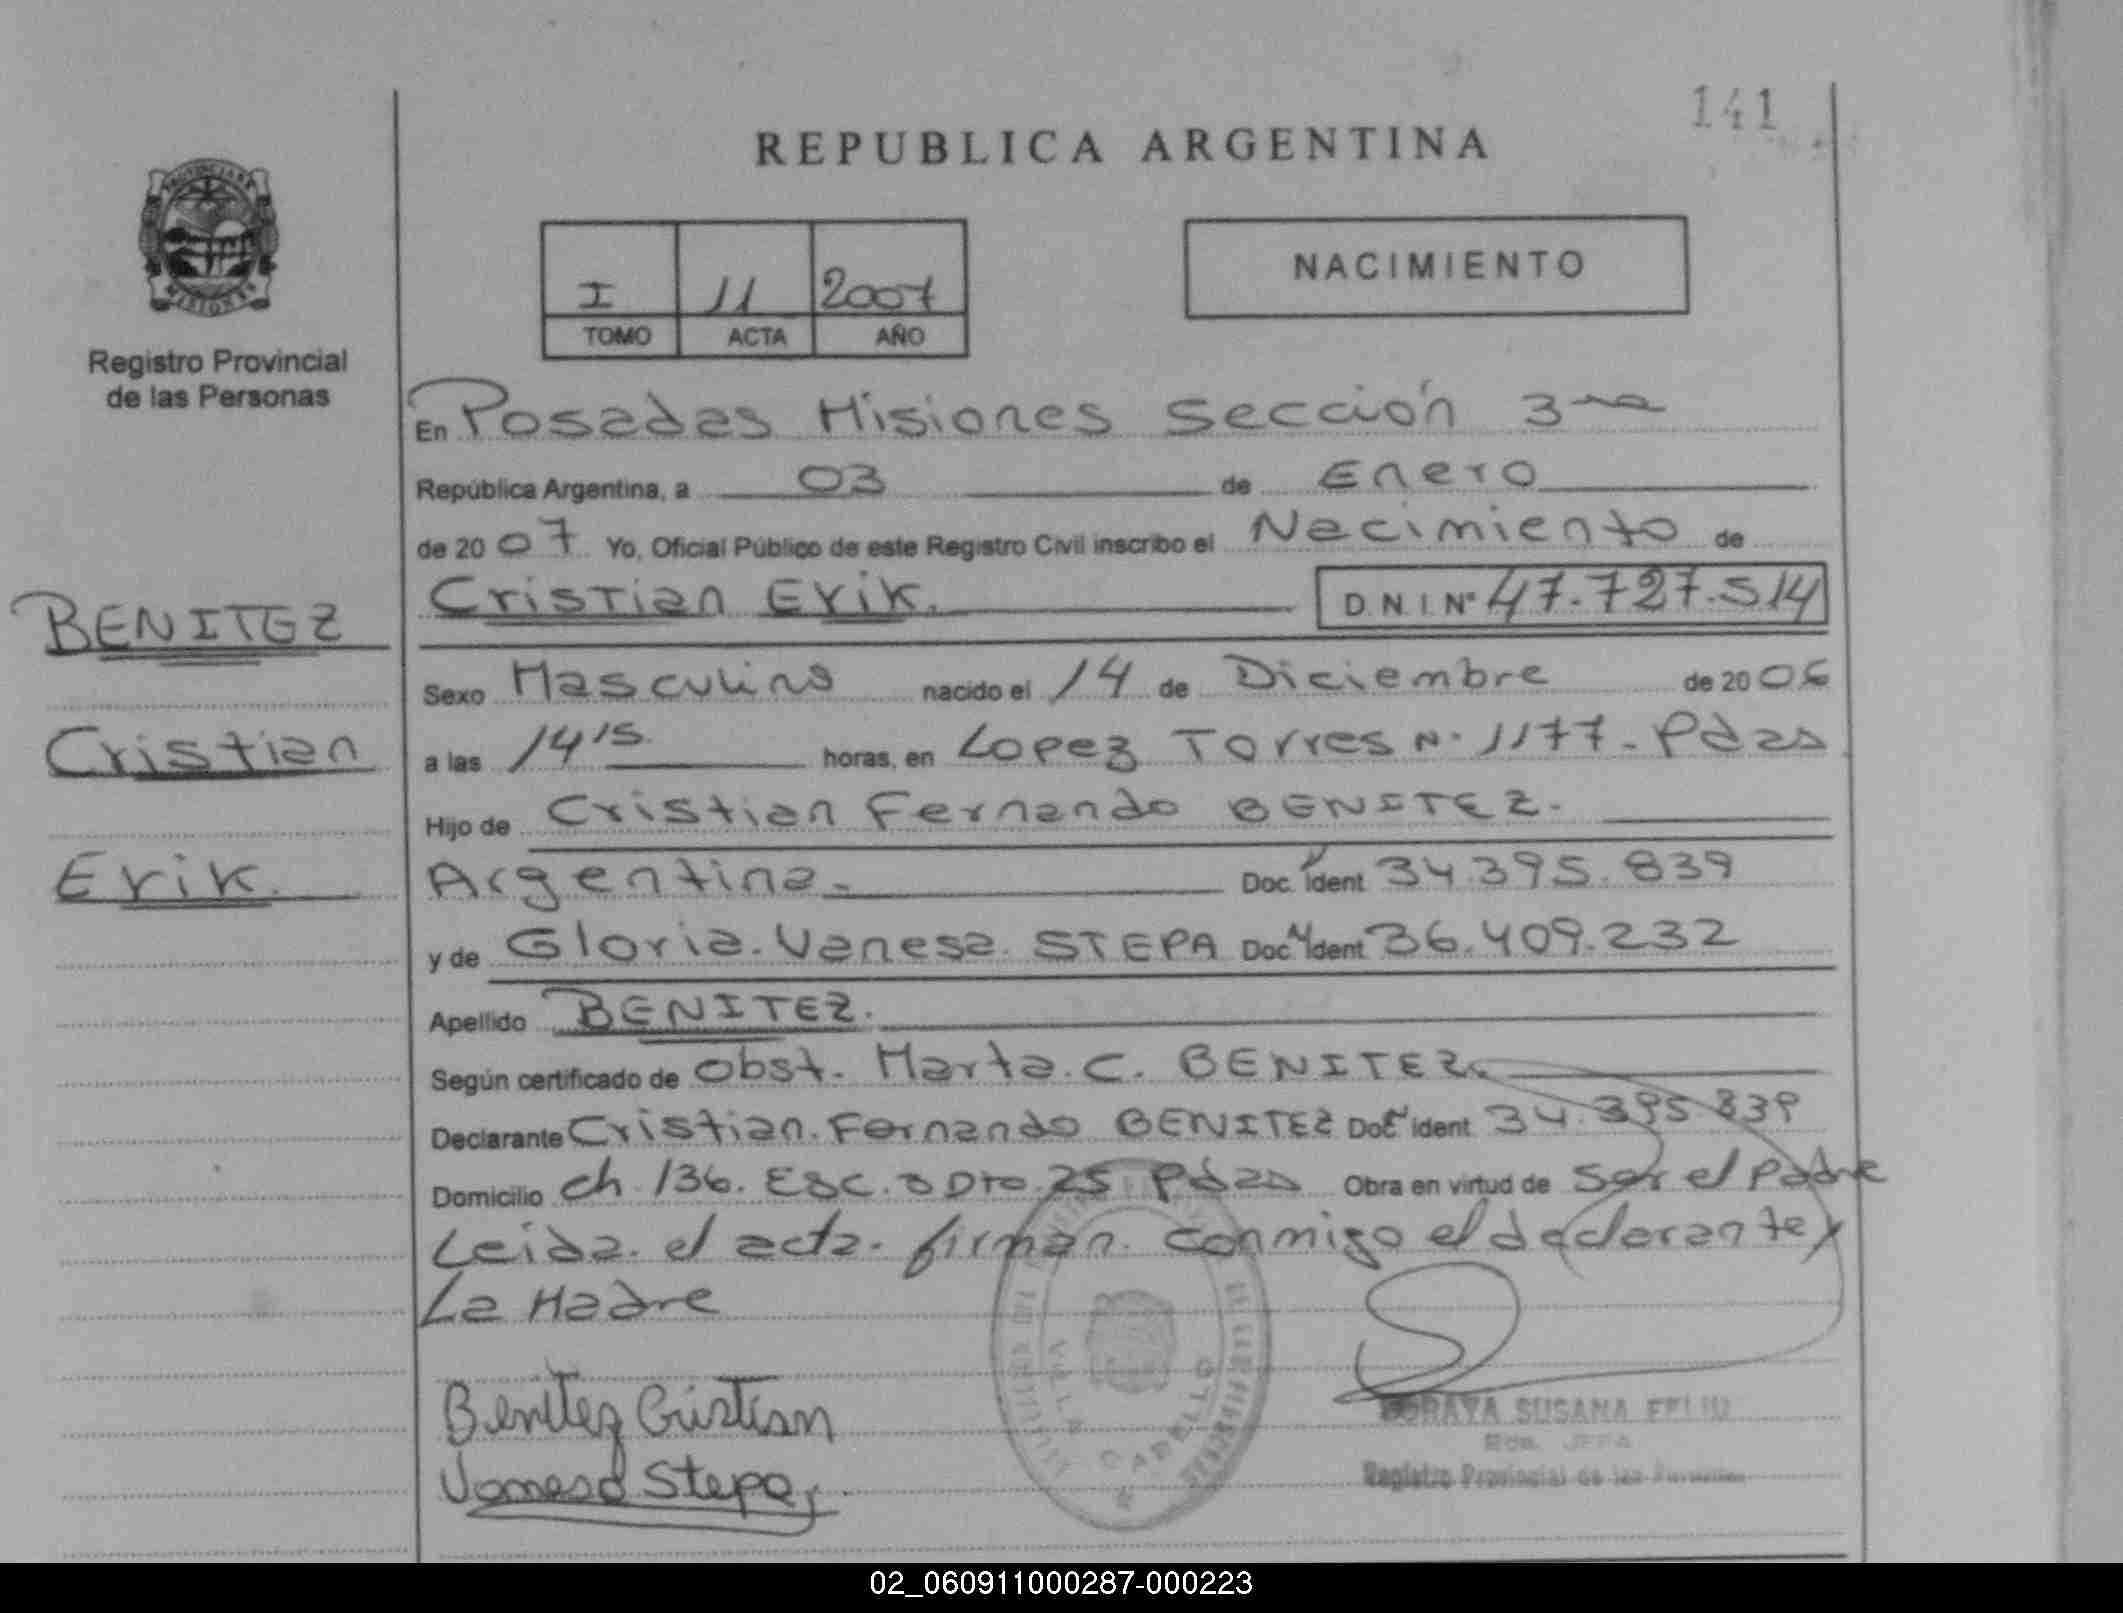 141
REPUBLICA ARGENTINA
PROVINCIA DE
MISIONES
Registro Provincial
de las Personas
I 11 2007
TOMO ACTA AÑO
NACIMIENTO
En Posadas Misiones Sección 3ra
República Argentina, a 03 de Enero
de 2007 Yo, Oficial Público de este Registro Civil inscribo el Nacimiento de
Cristian Erik. D.N.I. Nº 47.727.514
BENITEZ
Cristian
Erik.
Sexo Masculino nacido el 14 de Diciembre de 2006
a las 14 15 horas, en Lopez Torres N. 1177 - Pdas
Hijo de Cristian Fernando BENITEZ.
Argentina. Doc. Ident 34.395.839
y de Gloria. Vanesa. STEPA Doc. Ident 36.409.232
Apellido BENITEZ.
Según certificado de Obst. Marta. C. BENITEZ.
Declarante Cristian. Fernando BENITEZ Doc. ident. 34.395.839
Domicilio ch. 136. ESC. 3 Dto. 25 Pdas Obra en virtud de ser el padre
Leida. el acta. firman. conmigo el declarante y
La Madre
Benitez Cristian
Vanesa Stepa
VILLA CABELLO
SORAYA SUSANA FELIU
JEFA
Registro Provincial de las Personas
02_060911000287-000223